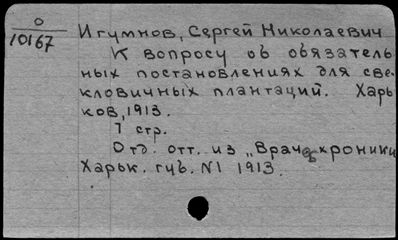 0
10167
Игумнов, Сергей Николаевич
К вопросу об обязатель
ных постановлениях для све-
кловичных плантаций. Харь
ков, 1913.
7 стр.
Отд. отт. из „Врач. хроники
Харьк. губ. N1 1913.